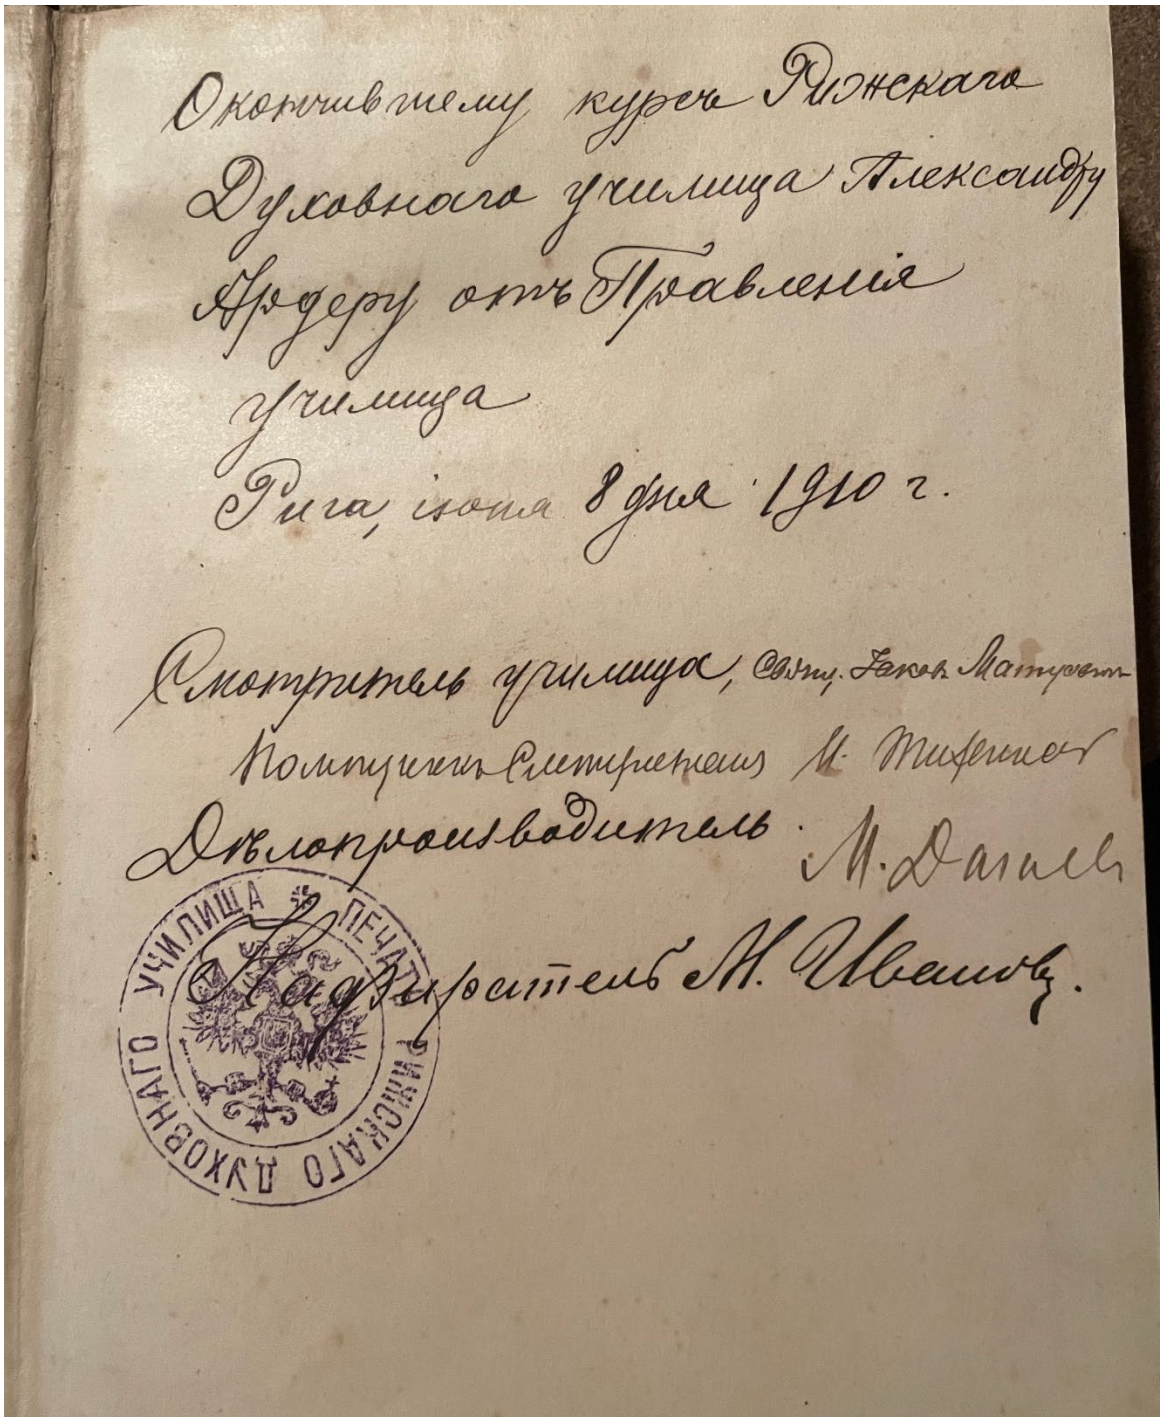 Окончившему курсъ Рижскаго
Духовнаго училища Александру
Ардеру отъ Правленія
училища
Рига, іюня 8 дня 1910 г.
Смотритель училища, Свящ. Іаковъ
Помощникъ Смотрителя И.
Дѣлопроизводитель М.
Надзиратель М. Ивановъ.
ПЕЧАТЬ РИЖСКАГО ДУХОВНАГО УЧИЛИЩА